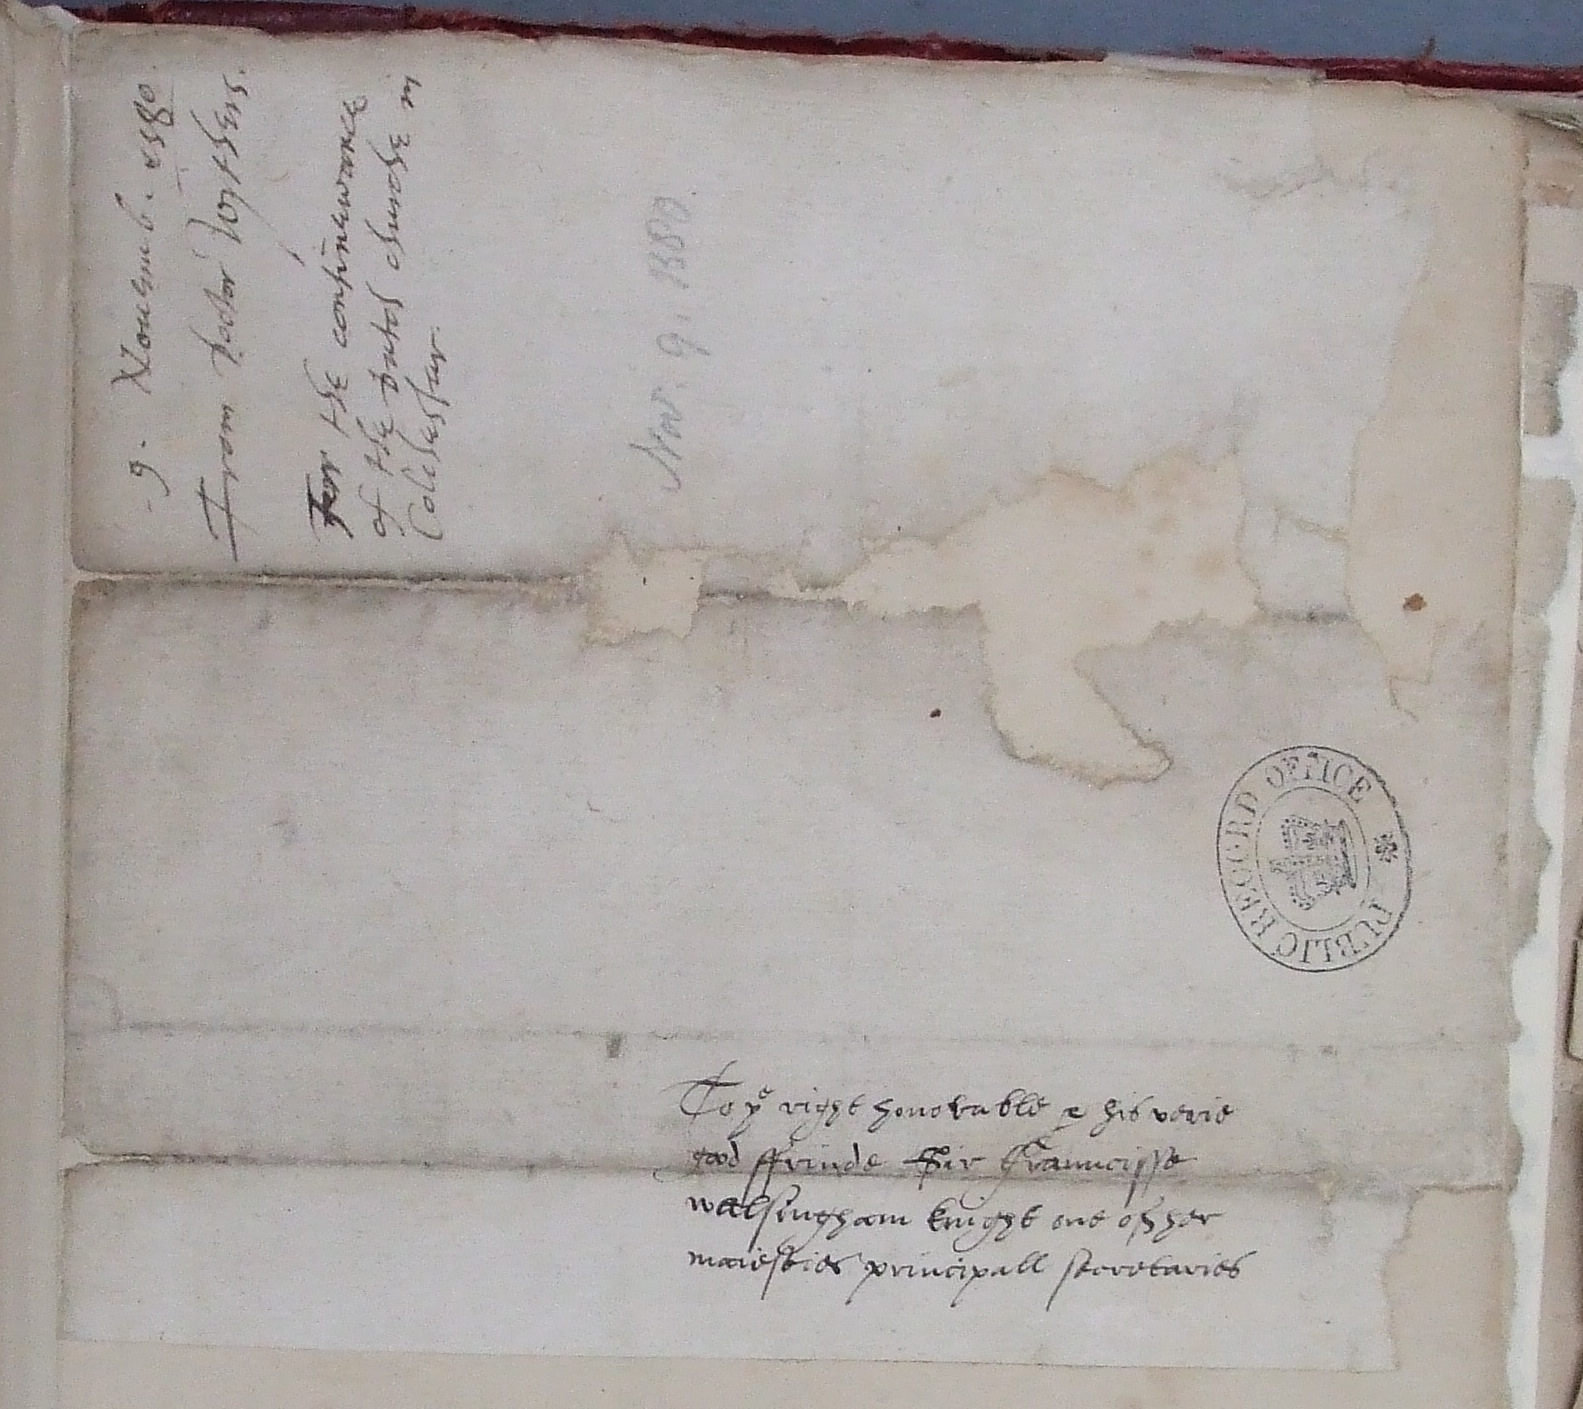 9. Nouemb. 1580
From Doctor Wythers.
For the continewance
of the dutch churche in
Colchester.
Nov. 9. 1580.
PUBLIC RECORD OFFICE
To ye right honorable & his verie
good ffrinde Sir Frauncisse
walsingham knight one of her
maiesties principall secretaries